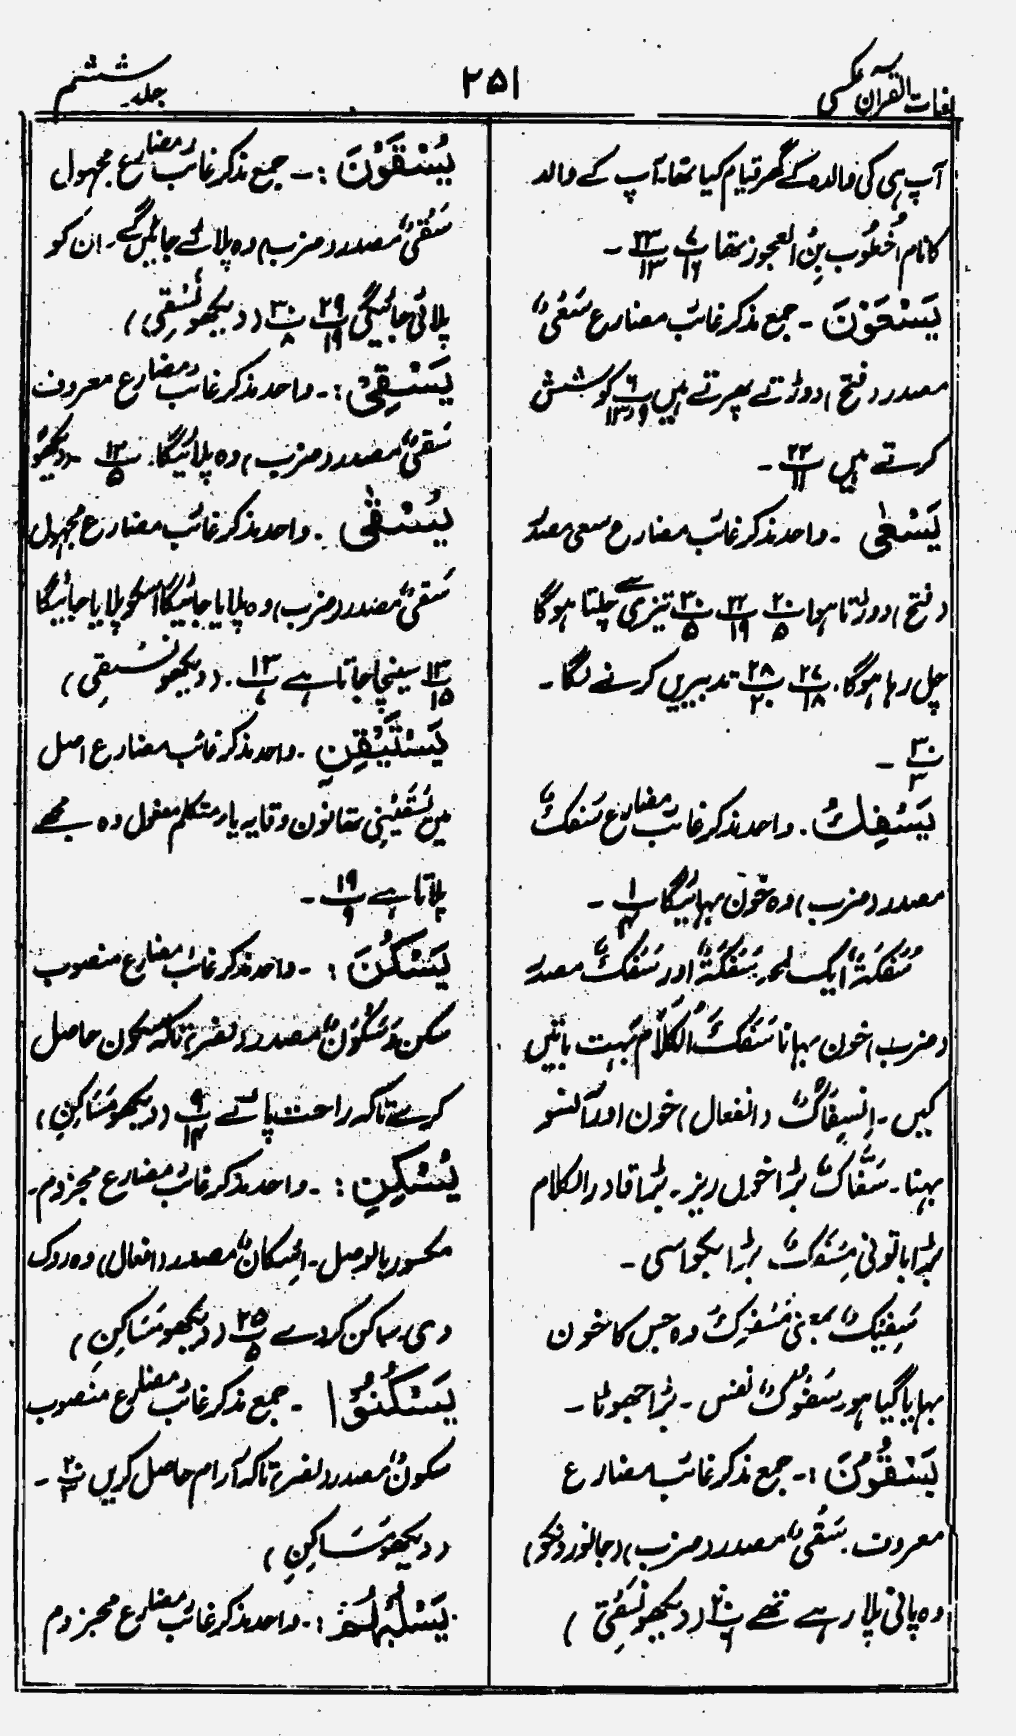 لغات القرآن عکسی
۲۵۱
جلد ششم
آپ ہی کی والدہ کے گھر قیام کیا تھا۔ آپ کے والد
کا نام اُخطُوب بِنُ العجوز تھا پ ۷/۱۶ پ ۲۳/۱۳ ۔
یَسْعَوْنَ ۔ جمع مذکر غائب مضارع سَعْیٌ
مصدر (فتح) دوڑتے پھرتے ہیں پ ۶/۱۳و۹ کوشش
کرتے ہیں پ ۲۲/۱۱ ۔
یَسْعٰی ۔ واحد مذکر غائب مضارع سعی مصدر
(فتح) دوڑتا ہوا پ ۲۰/۵ پ ۲۲/۱۹ پ ۳۰/۵ تیزی سے چلتا ہوگا
چل رہا ہوگا۔ پ ۲۷/۱۸ پ ۲۸/۲۰ تدبیریں کرنے لگا ۔
پ ۳۰/۳ ۔
یَسْفِكُ ۔ واحد مذکر غائب مضارع سَفْكٌ
مصدر (ضرب) وہ خون بہائیگا پ ۱/۴ ۔
سُفْكَةٌ ایک لمحہ سَفْكَةٌ اور سَفْكٌ مصدر
(ضرب) خون بہانا سَفَكَ الْكَلَامَ بہت باتیں
کیں ۔ اِنْسِفَاكٌ (انفعال) خون اور آنسو
بہنا ۔ سَفَّاكٌ بڑا خوں ریز ۔ بڑا قادر الکلام
بڑا باتونی مِسْفَكٌ بڑا بکواسی ۔
سَفِیْكٌ بمعنی مَسْفُوْكٌ وہ جس کا خون
بہایا گیا ہو سَفُوْكٌ نفس ۔ بڑا جھوٹا ۔
یَسْقُوْنَ :۔ جمع مذکر غائب مضارع
معروف سَقْیٌ مصدر (ضرب) (جانوروں کو)
وہ پانی پلا رہے تھے پ ۲۰/۶ (دیکھو نُسْقِی)
یُسْقَوْنَ :۔ جمع مذکر غائب مضارع مجہول
سَقْیٌ مصدر (ضرب) وہ پلائے جائیں گے۔ ان کو
پلائی جائیگی پ ۲۹/۱۹ پ ۳۰/۸ (دیکھو نُسْقِی)
یَسْقِیْ :۔ واحد مذکر غائب مضارع معروف
سَقْیٌ مصدر (ضرب) وہ پلائیگا۔ پ ۱۲/۵ ۔ (دیکھو
یُسْقٰی ۔ واحد مذکر غائب مضارع مجہول
سَقْیٌ مصدر (ضرب) وہ پلایا جائیگا اسکو پلایا جائیگا
پ ۱۳/۱۵ سینچا جاتا ہے پ ۱۳/۷ ۔ (دیکھو نُسْقِی)
یَسْقِیْنِ ۔ واحد مذکر غائب مضارع اصل
میں یَسْقِیْنِی تھا نون وقایہ یاء متکلم مفعول وہ مجھے
پلاتا ہے پ ۱۹/۹ ۔
یَسْكُنَ :۔ واحد مذکر غائب مضارع منصوب
سکن و سُكُوْنٌ مصدر (نصر) تاکہ سکون حاصل
کرے تاکہ راحت پائے پ ۹/۱۴ (دیکھو مَسَاكِنِ)
یُسْكِنِ :۔ واحد مذکر غائب مضارع مجزوم ۔
مکسور بالوصل ۔ اِسْكَانٌ مصدر (افعال) وہ روک
دی۔ ساکن کر دے پ ۲۵/۵ (دیکھو مَسَاكِنِ)
یَسْكُنُوْا ۔ جمع مذکر غائب مضارع منصوب
سکونٌ مصدر (نصر) تاکہ آرام حاصل کریں پ ۲۰/۳ ۔
(دیکھو مَسَاكِنِ)
یَسْلُبْهُمْ :۔ واحد مذکر غائب مضارع مجزوم